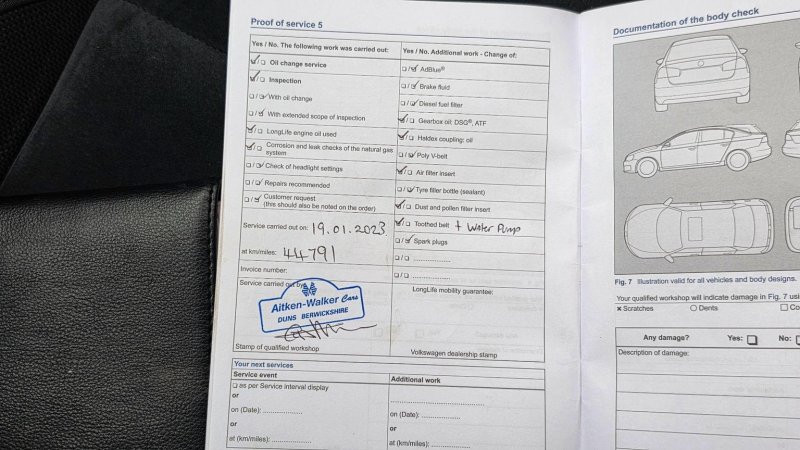 Proof of service 5
Yes / No. The following work was carried out:
Oil change service
Inspection
With oil change
With extended scope of inspection
LongLife engine oil used
Corrosion and leak checks of the natural gas
system
Check of headlight settings
Repairs recommended
Customer request
(this should also be noted on the order)
Service carried out on: 19.01.2023
at km/miles: 44791
Invoice number:
Service carried out by:
Aitken-Walker Cars
DUNS BERWICKSHIRE
Stamp of qualified workshop
Yes / No. Additional work - Change of:
AdBlue®
Brake fluid
Diesel fuel filter
Gearbox oil: DSG®, ATF
Haldex coupling: oil
Poly V-belt
Air filter insert
Tyre filler bottle (sealant)
Dust and pollen filter insert
Toothed belt + Water Pump
Spark plugs
LongLife mobility guarantee:
Volkswagen dealership stamp
Your next services
Service event
as per Service interval display
or
on (Date): ....................
or
at (km/miles): ....................
Additional work
on (Date): ....................
or
at (km/miles): ....................
Documentation of the body check
Fig. 7 Illustration valid for all vehicles and body designs.
Your qualified workshop will indicate damage in Fig. 7 usi
× Scratches
Dents
Co
Any damage? Yes: No:
Description of damage: